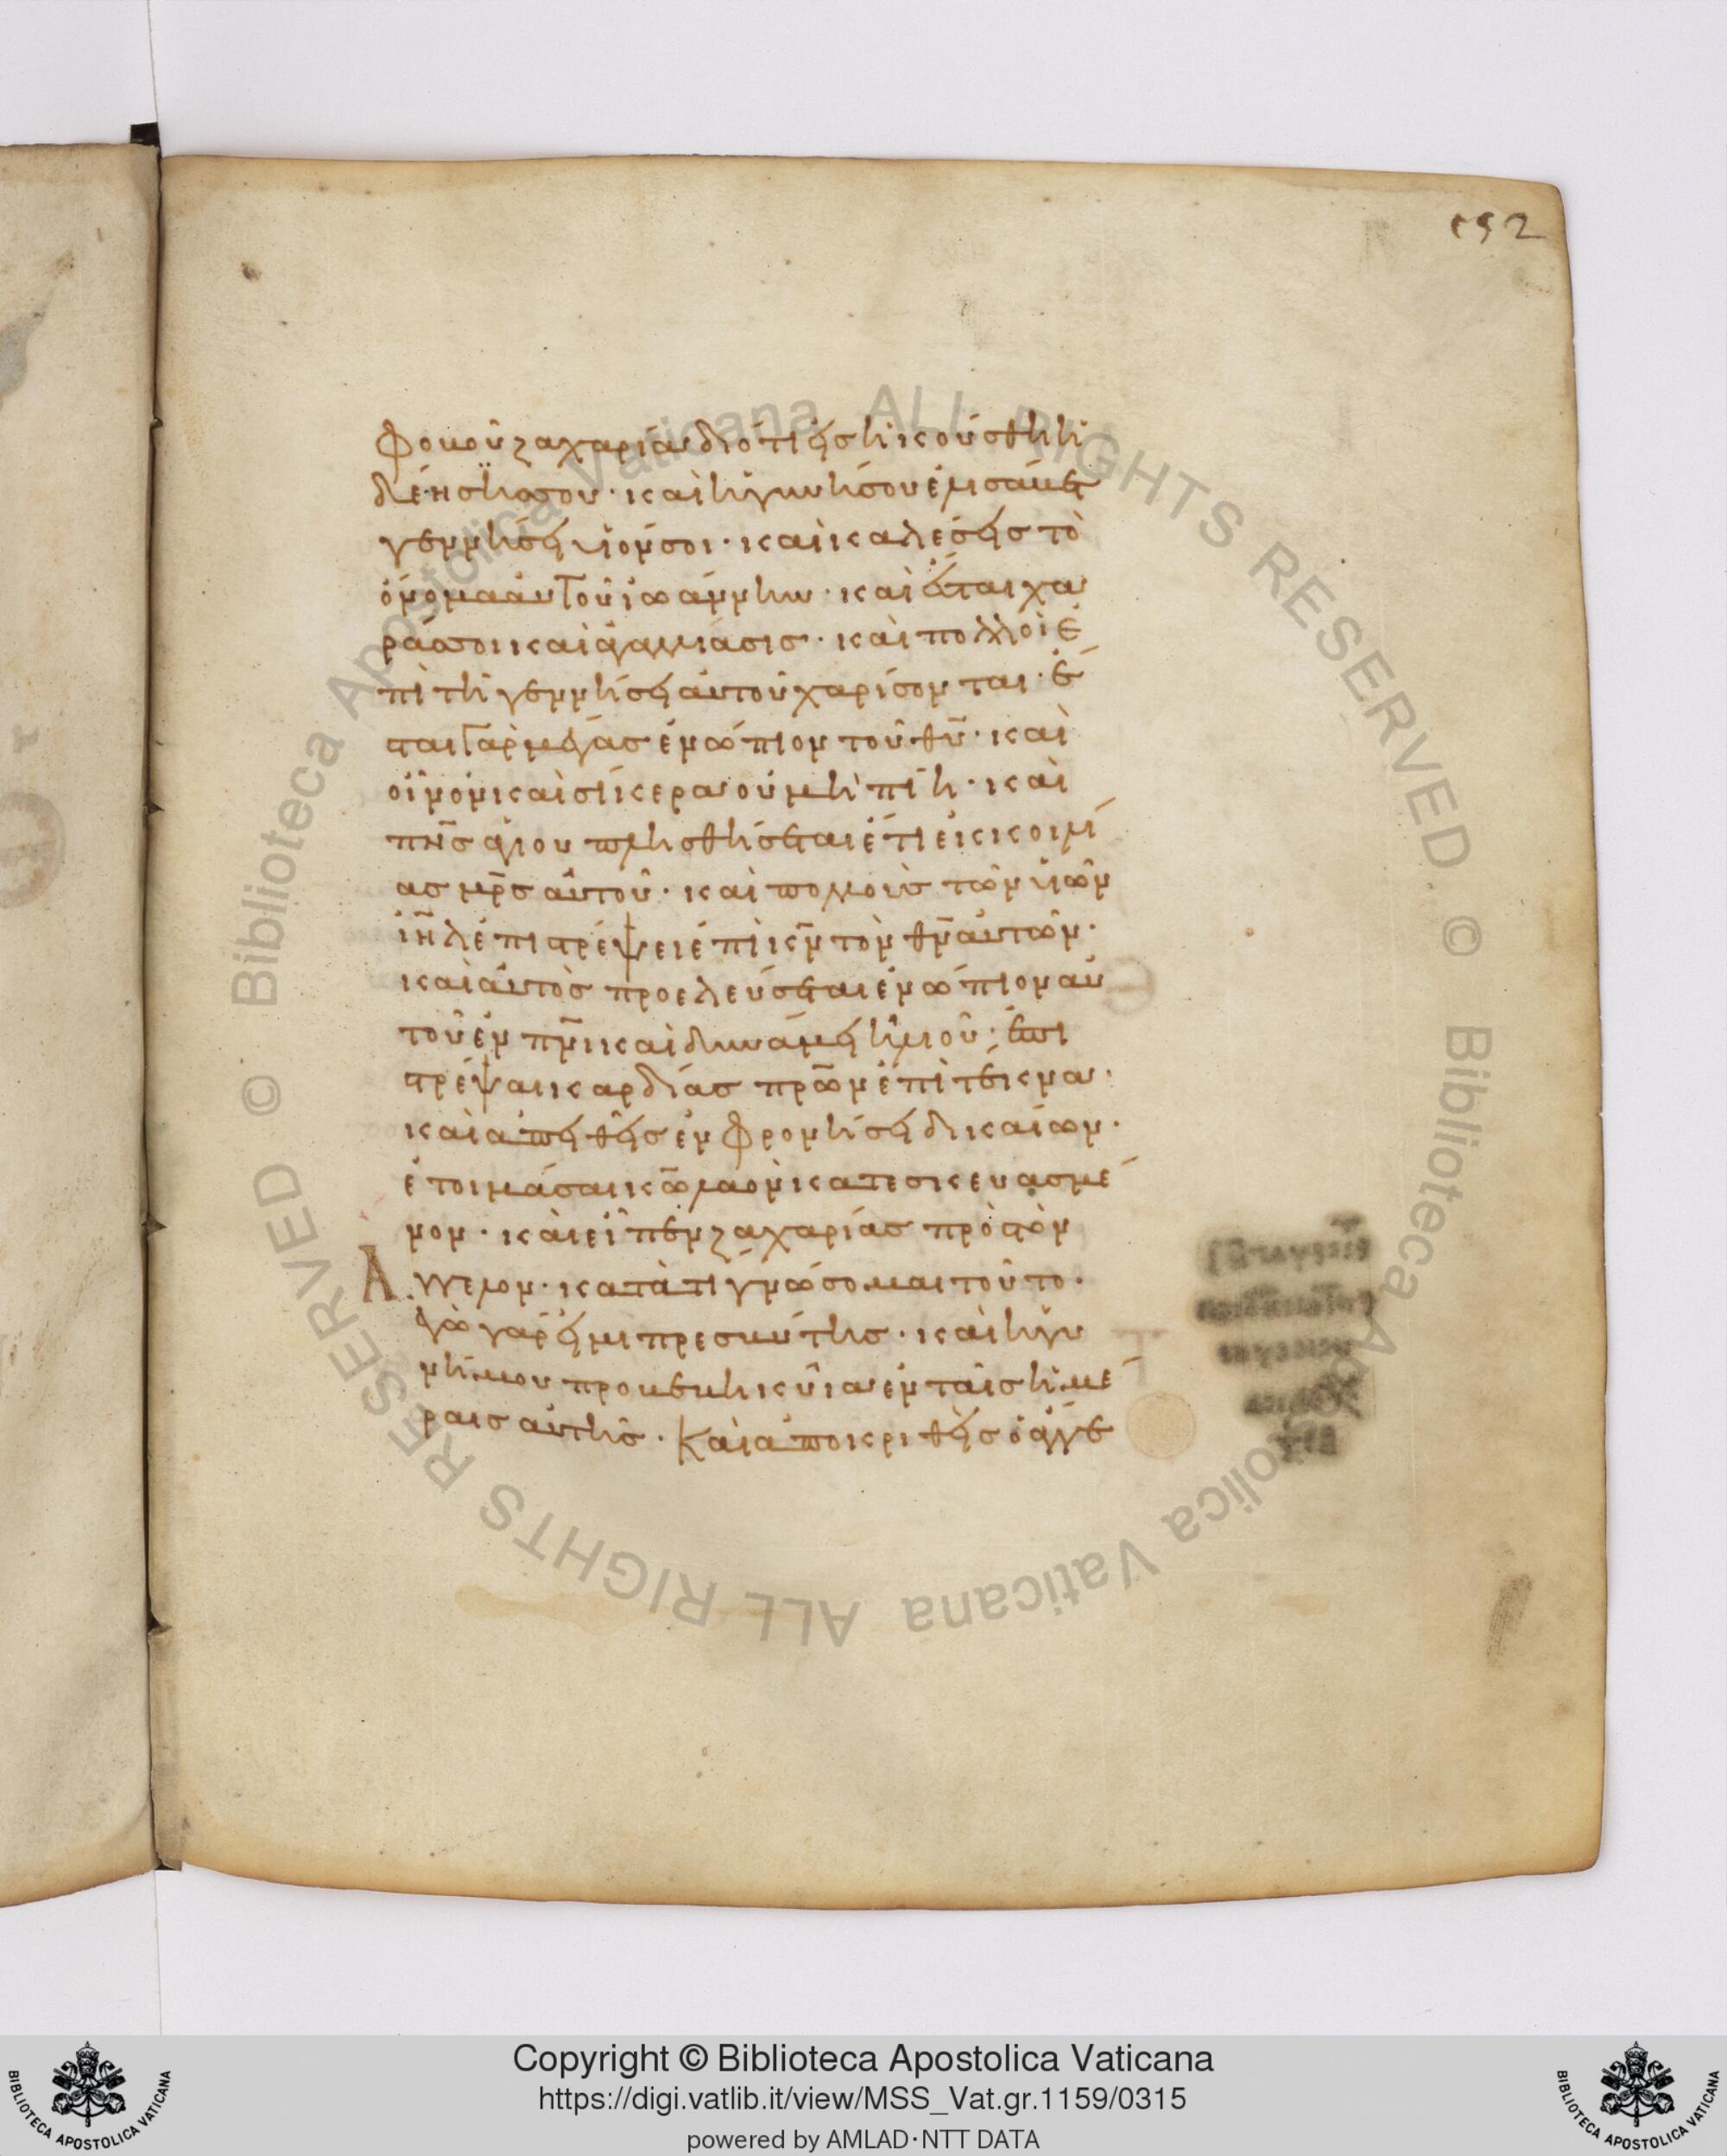 152
φοβοῦ ζαχαρία διότι εἰσηκούσθη ἡ
δέησίς σου· καὶ ἡ γυνή σου ἐλισάβετ
γεννήσει υἱόν σοι· καὶ καλέσεις τὸ
ὄνομα αὐτοῦ ἰωάννην· καὶ ἔσται χα
ρά σοι καὶ ἀγαλλίασις· καὶ πολλοὶ ἐ
πὶ τῇ γεννήσει αὐτοῦ χαρίσονται· ἔ
σται γὰρ μέγας ἐνώπιον τοῦ θ̅υ̅· καὶ
οἶνον καὶ σίκερα οὐ μὴ πίη· καὶ
π̅ν̅ς̅ ἁγίου πλησθήσεται ἔτι ἐκ κοιλί
ας μ̅ρ̅ς̅ αὐτοῦ· καὶ πολλοὺς τῶν υἱῶν
ι̅η̅λ̅ ἐπιστρέψει ἐπὶ κ̅ν̅ τὸν θ̅ν̅ αὐτῶν·
καὶ αὐτὸς προελεύσεται ἐνώπιον αὐ
τοῦ ἐν π̅ν̅ι̅ καὶ δυνάμει ἡλιοῦ· ἐπι
στρέψαι καρδίας π̅ρ̅ω̅ν̅ ἐπὶ τέκνα·
καὶ ἀπειθεῖς ἐν φρονήσει δικαίων·
ἑτοιμάσαι κ̅ω̅ λαὸν κατεσκευασμέ
νον· καὶ εἶπεν ζαχαρίας πρὸς τὸν
Ἄγγελον· κατὰ τί γνώσομαι τοῦτο·
ἐγὼ γάρ εἰμι πρεσβύτης· καὶ ἡ γυ
νή μου προβεβηκυῖα ἐν ταῖς ἡμέ
ραις αὐτῆς· Καὶ ἀποκριθεὶς ὁ ἄγγε
© Biblioteca Apostolica Vaticana ALL RIGHTS RESERVED © Biblioteca Apostolica Vaticana ALL RIGHTS RESERVED
BIBLIOTECA APOSTOLICA VATICANA
Copyright © Biblioteca Apostolica Vaticana
https://digi.vatlib.it/view/MSS_Vat.gr.1159/0315
powered by AMLAD·NTT DATA
BIBLIOTECA APOSTOLICA VATICANA